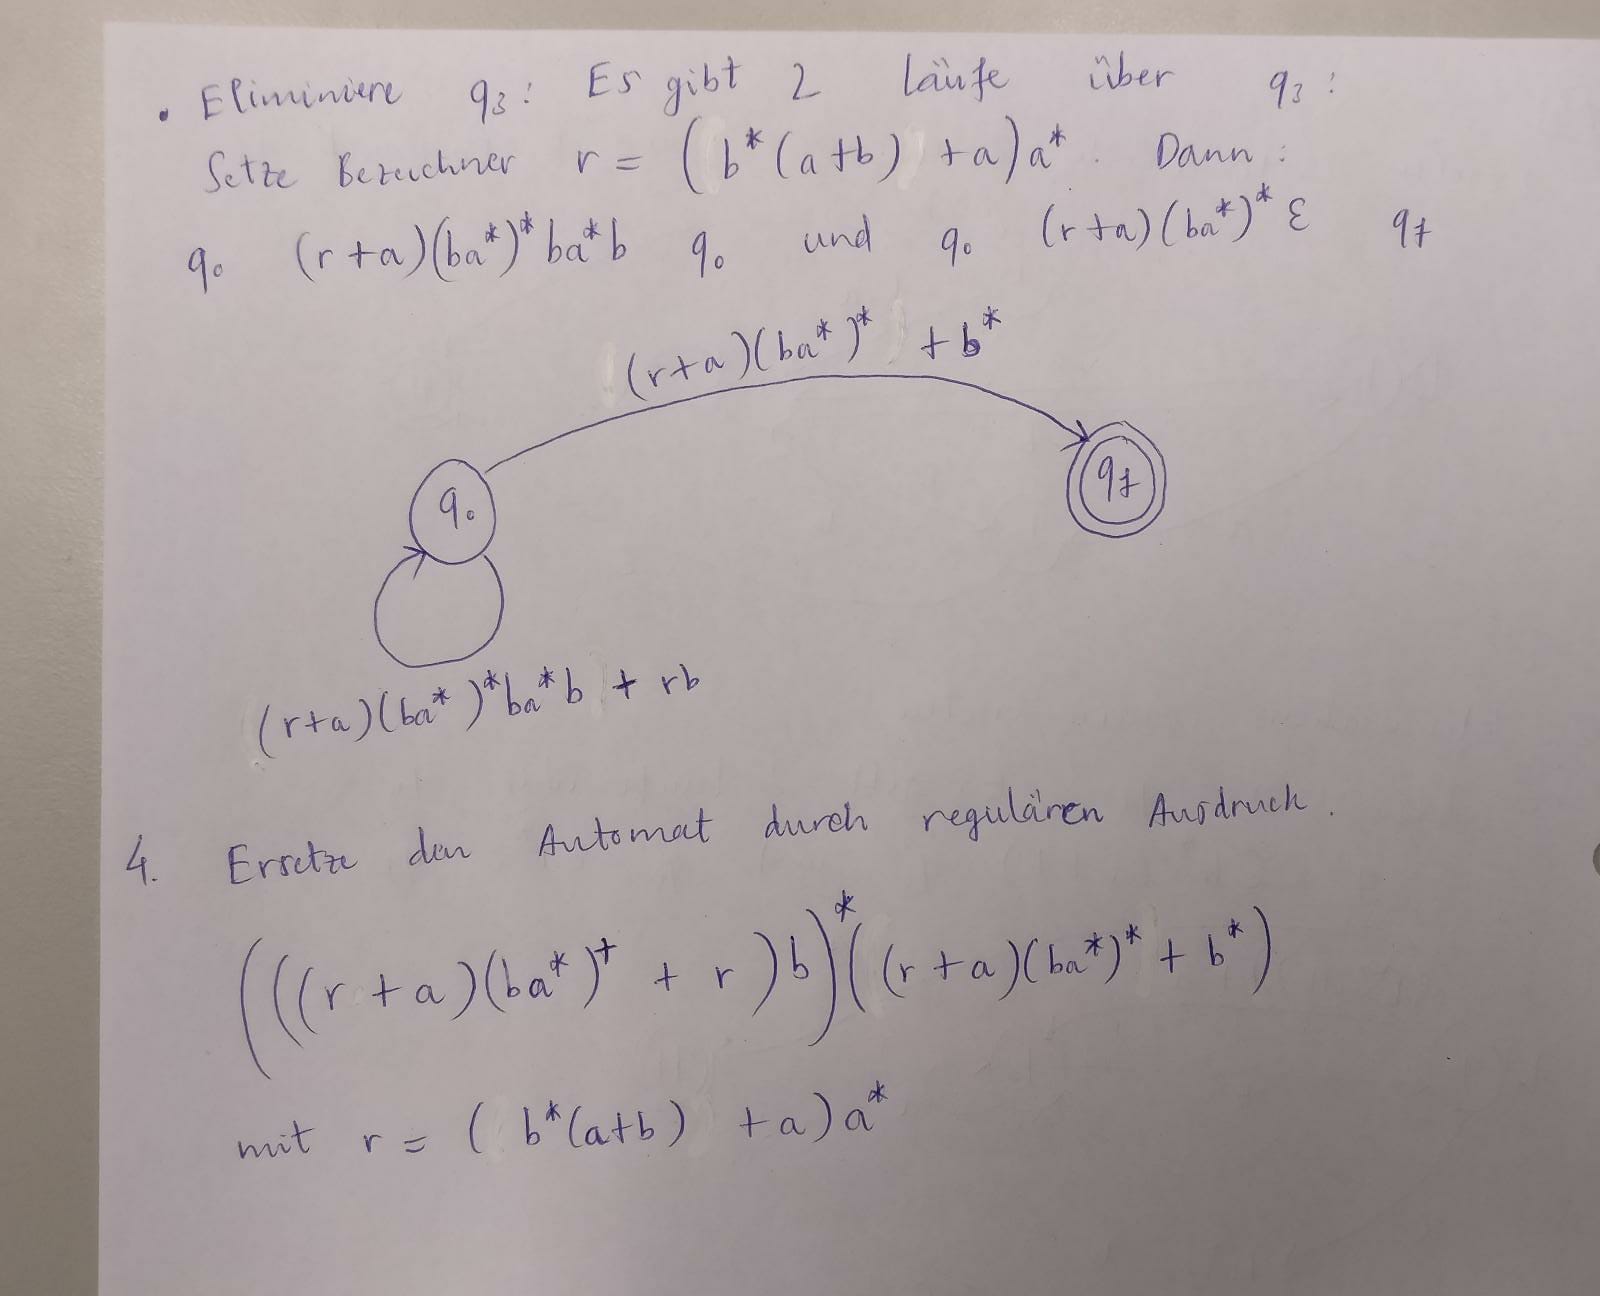 • Eliminiere q₃: Es gibt 2 Läufe über q₃:
Setze Bezeichner r = (b*(a+b) +a)a*. Dann:
q₀ (r+a)(ba*)*ba*b q₀ und q₀ (r+a)(ba*)*ε q_f
(r+a)(ba*)* + b*
q₀ q_f
(r+a)(ba*)*ba*b + rb
4. Ersetze den Automat durch regulären Ausdruck.
(((r+a)(ba*)⁺ + r)b)*((r+a)(ba*)* + b*)
mit r = (b*(a+b) +a)a*